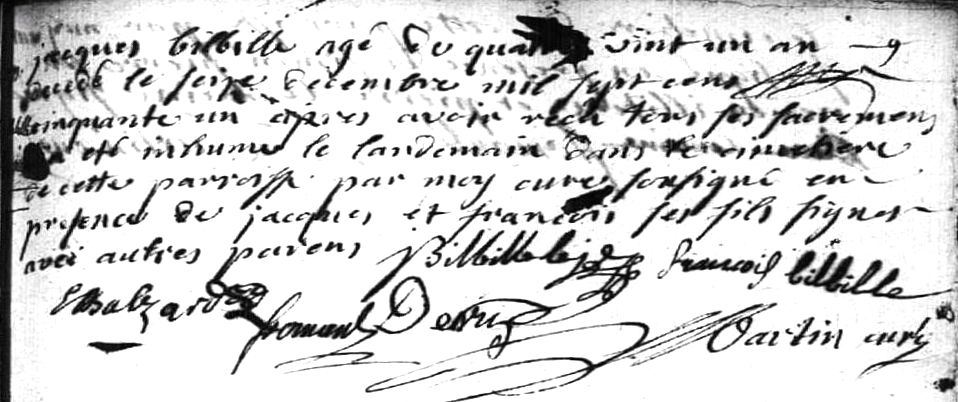 jacques bilbille agé de quatre vint un an
decede le seize decembre mil sept cens
cinquante un apres avoir recu tous ses sacremens
a eté inhumé le landemain dans le cimetiere
de cette parroisse par moy curé sousigné en
presence de jacques et francois ses fils signes
avec autres parens Bilbille francois bilbille
Balzard froment Martin curé